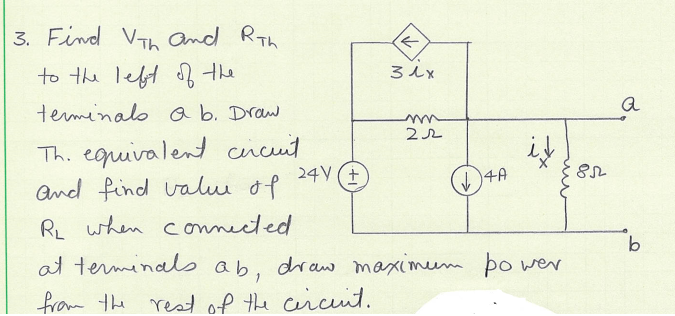 3. Find VTh and RTh
to the left of the
terminals a b. Draw
Th. equivalent circuit
and find value of
RL when connected
at terminals ab, draw maximum power
from the rest of the circuit.
3ix
2Ω
a
ix
24V
+
4A
8Ω
b